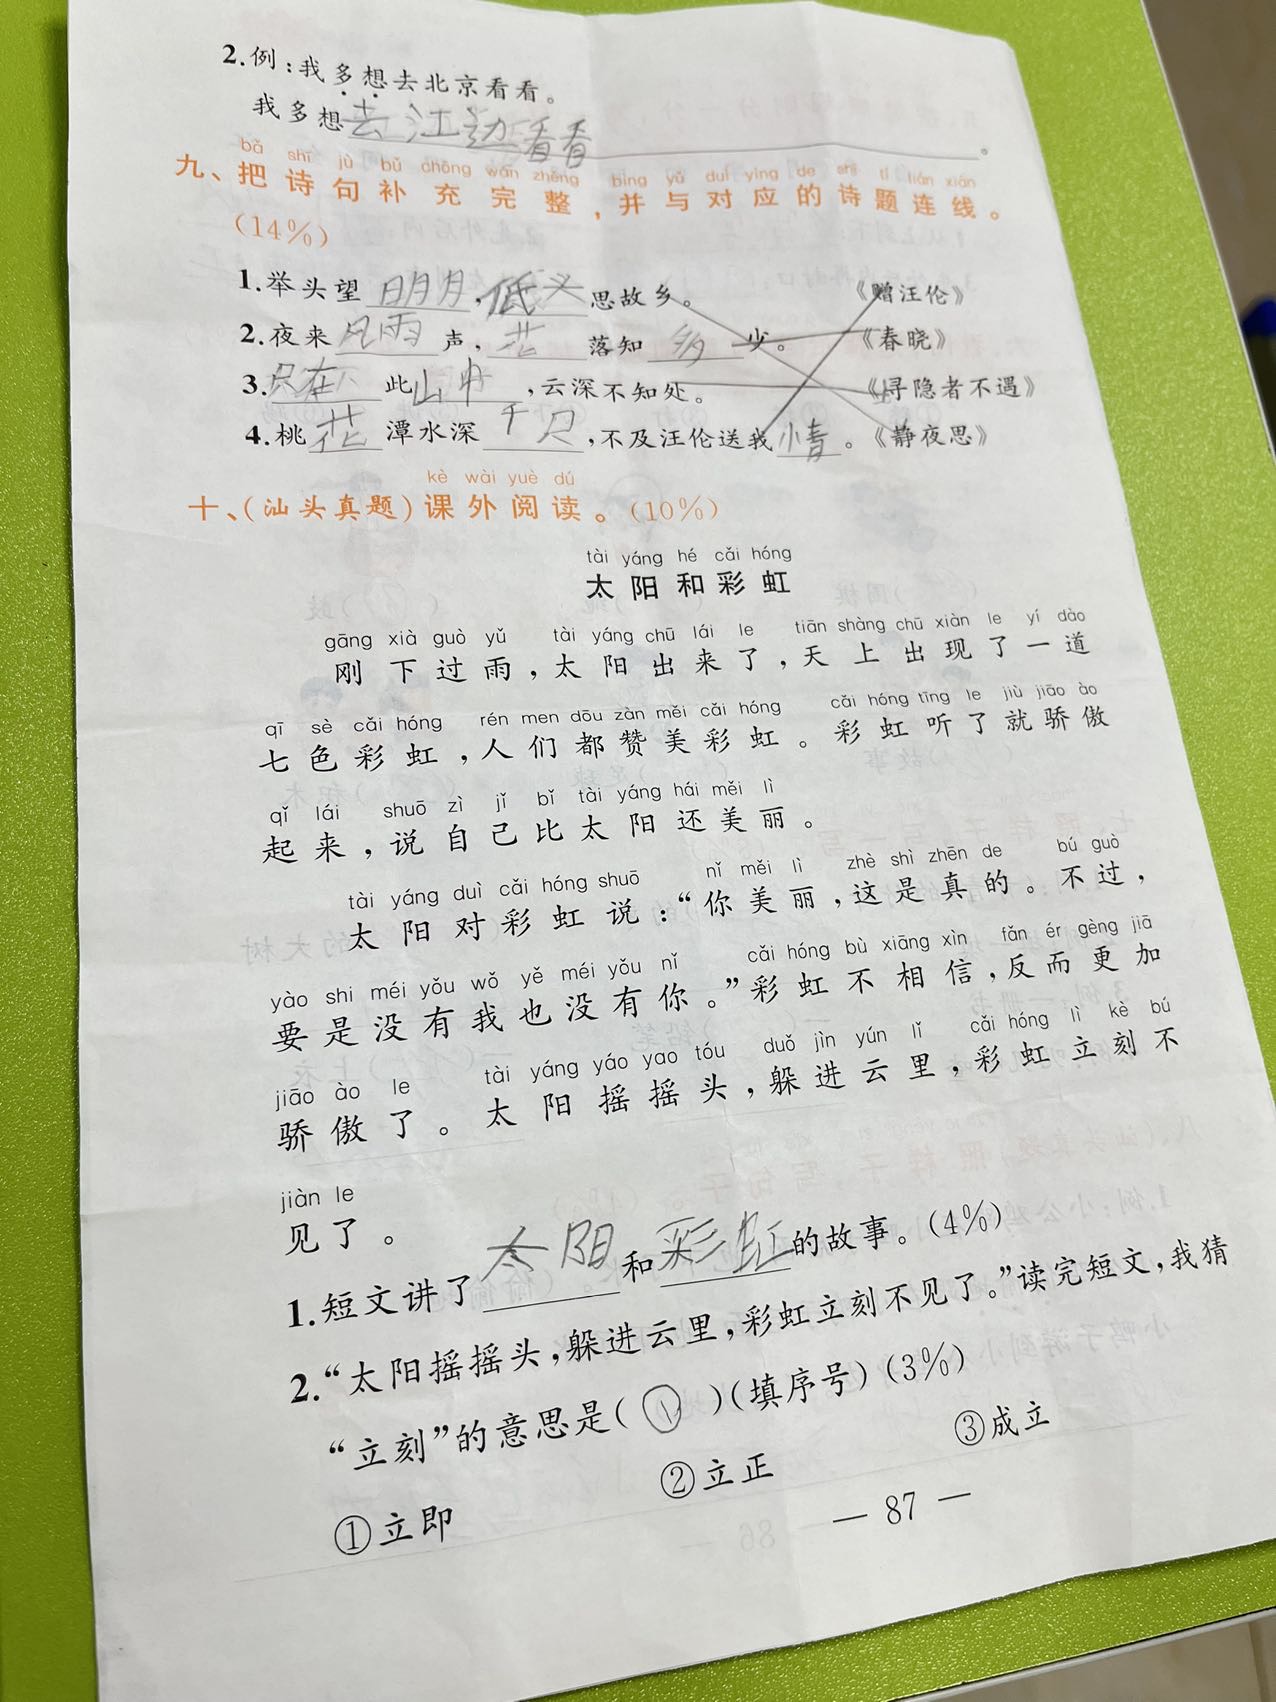 2.例：我多想去北京看看。
我多想去江边看看。
bǎ shī jù bǔ chōng wán zhěng bìng yǔ duì yìng de shī tí lián xiàn
九、把诗句补充完整，并与对应的诗题连线。
(14%)
1.举头望明月，低头思故乡。 《赠汪伦》
2.夜来风雨声，花落知多少。 《春晓》
3.只在此山中，云深不知处。 《寻隐者不遇》
4.桃花潭水深千尺，不及汪伦送我情。 《静夜思》
kè wài yuè dú
十、(汕头真题)课外阅读。(10%)
tài yáng hé cǎi hóng
太阳和彩虹
gāng xià guò yǔ tài yáng chū lái le tiān shàng chū xiàn le yí dào
刚下过雨，太阳出来了，天上出现了一道
qī sè cǎi hóng rén men dōu zàn měi cǎi hóng cǎi hóng tīng le jiù jiāo ào
七色彩虹，人们都赞美彩虹。彩虹听了就骄傲
qǐ lái shuō zì jǐ bǐ tài yáng hái měi lì
起来，说自己比太阳还美丽。
tài yáng duì cǎi hóng shuō nǐ měi lì zhè shì zhēn de bú guò
太阳对彩虹说：“你美丽，这是真的。不过，
yào shi méi yǒu wǒ yě méi yǒu nǐ cǎi hóng bù xiāng xìn fǎn ér gèng jiā
要是没有我也没有你。”彩虹不相信，反而更加
jiāo ào le tài yáng yáo yao tóu duǒ jìn yún lǐ cǎi hóng lì kè bú
骄傲了。太阳摇摇头，躲进云里，彩虹立刻不
jiàn le
见了。
1.短文讲了太阳和彩虹的故事。(4%)
2.“太阳摇摇头，躲进云里，彩虹立刻不见了。”读完短文，我猜
“立刻”的意思是(①)(填序号)(3%)
①立即 ②立正 ③成立
— 87 —